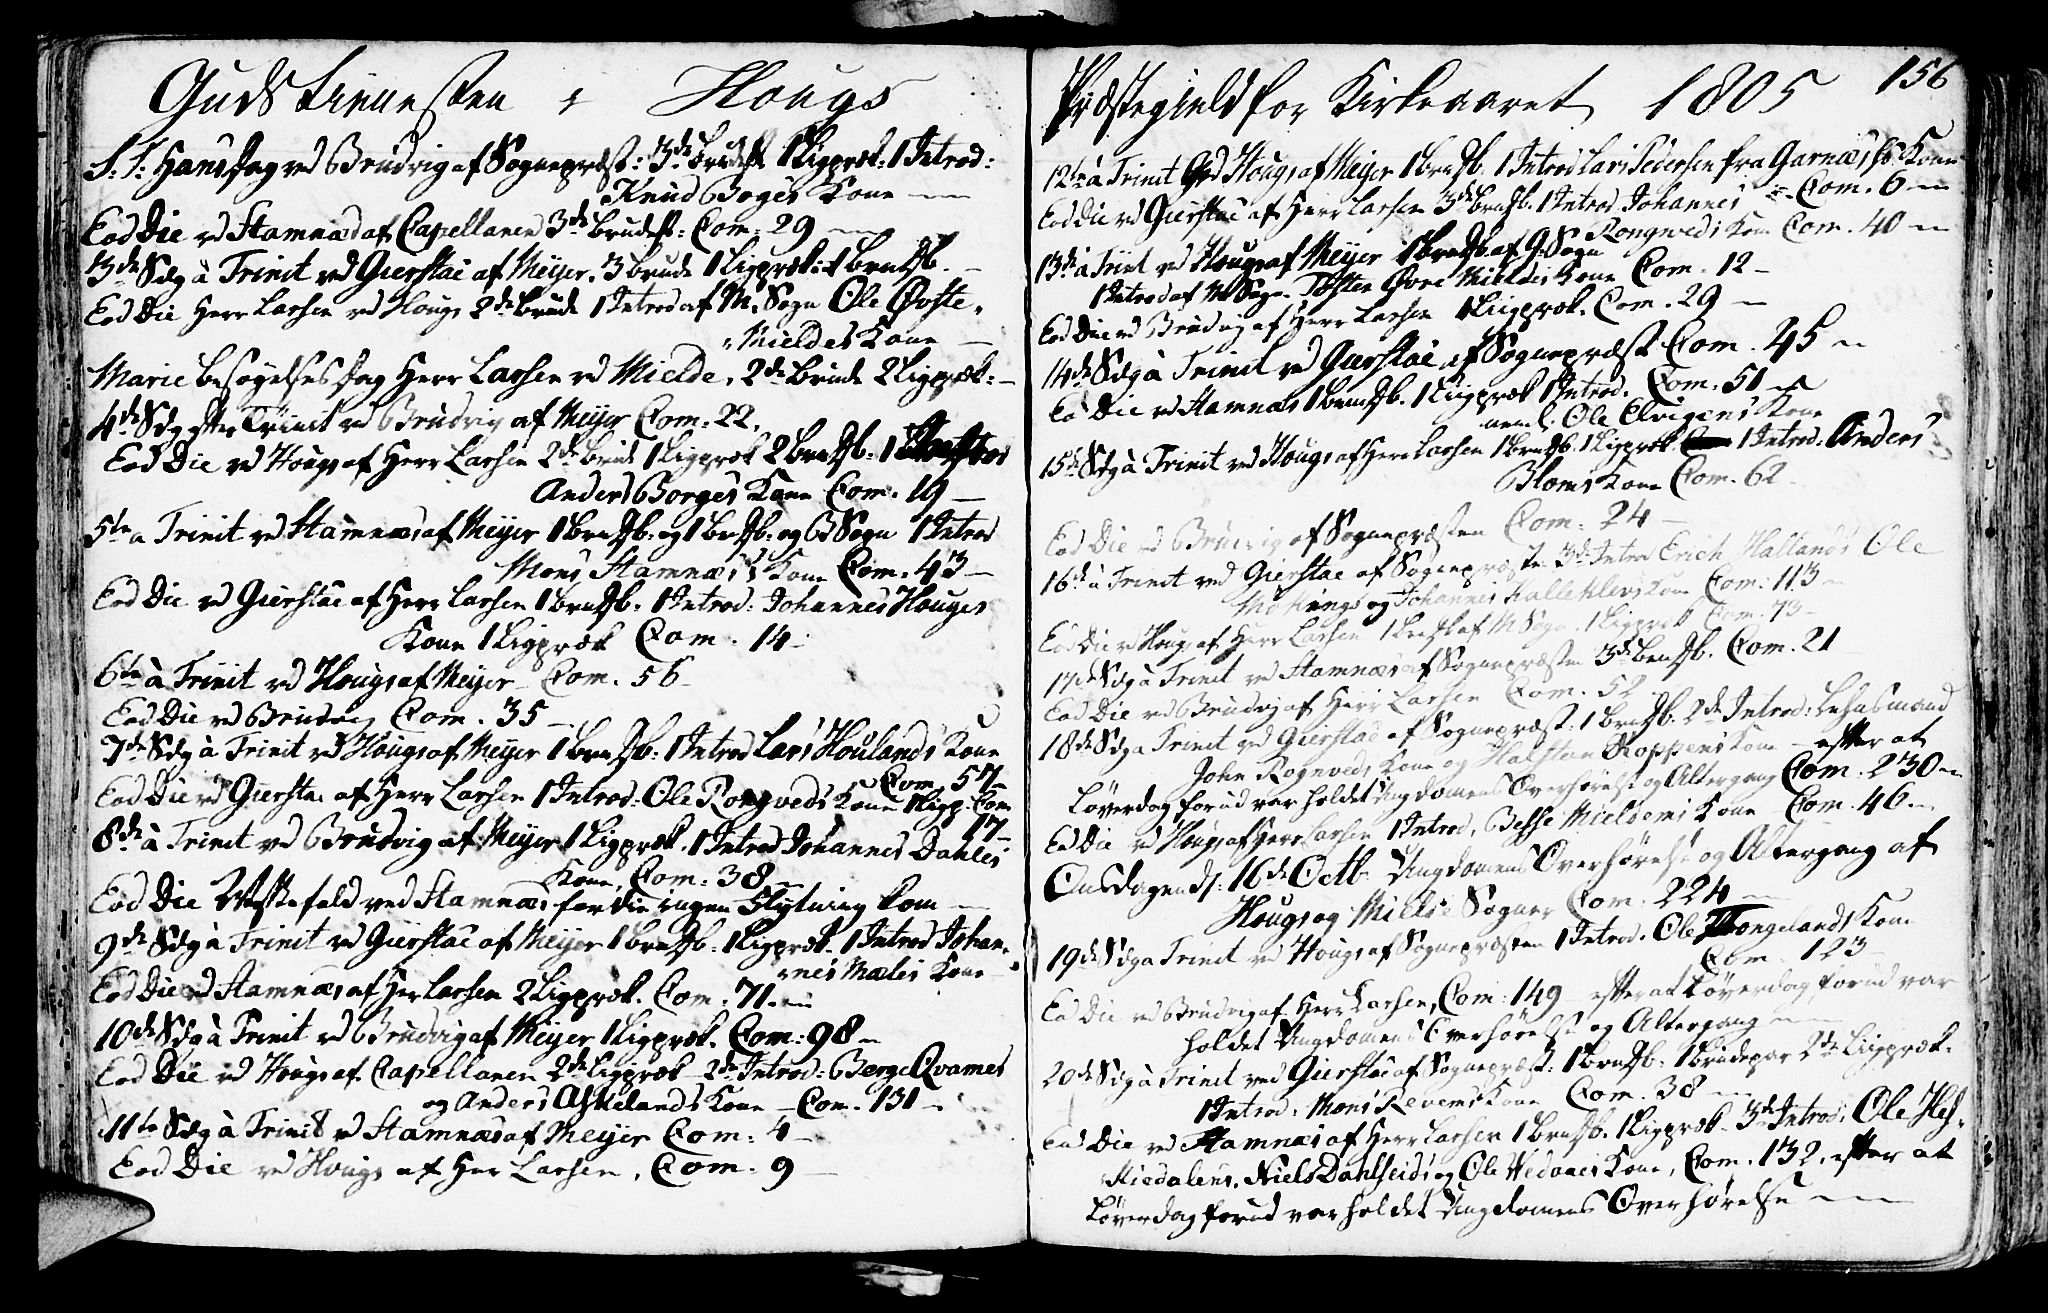 Guds tienesten i Hougs
S: S: Hans dag ved Brudvig af Sognepræst: 3de brudefk 1 Ligpræk: 1 Introd:
Knud Boges Kone
Eod Die ved Stamnæs af Capellanen 3de brudefk: Com: 29
3de Sdg à Trinit ved Gierstad af Meijer. 3 brude 1 Ligpræk: 1 brnDb.
Eod Die Herr Larsen ved Hougs 2de brude 1 Introd af M. Sogn Ole Øvste
Mieldes Kone
Marie besøgelses dag Herr Larsen ved Mielde. 2de brude 2 Ligpræk:
4de Sdg efter Trinit ved Brudvig af Meijer Com: 22.
Eod Die ved Hougs af Herr Larsen 2de brude 1 Ligpræk 2 brnDb: 1
Anders Borges Kone Com. 19
5te a Trinit ved Stamnæs af Meijer 1 brnDb. og 1 brnDb. og B Sogn 1 Introd
Mons Stamnæs's Kone Com. 43
Eod Die ved Gierstad af Herr Larsen 1 brnDb. 1 Introd: Johannes Houges
Kone 1 Ligpræk Com. 14
6te à Trinit ved Hougs af Meijer Com. 56
Eod Die ved Brudvig Com. 35
7de Sdg à Trinit ved Hougs af Meijer 1 brnDb: 1 Introd Lars Houlands Kone
Com. 57
Eod Die ved Giersta af Herr Larsen 1 Introd: Ole Rongveds Kone 1 Ligp: Com
17
8de à Trinit ved Brudvig af Meijer 1 Ligpræk. 1 Introd Johannes Dahles
Kone, Com: 38
Eod Die Messefald ved Stamnæs fordi ingen Flytning kom
9de Sdg à Trinit ved Gierstad af Meijer 1 brnDb: 1 Ligpræk. 1 Introd Johan-
nes Mæles Kone
Eod Die ved Stamnæs af Her Larsen 2 Ligpræk. Com. 71.
10de Sdg à Trinit ved Brudvig af Meijer 1 Ligpræk. Com: 98
Eod Die ved Hougs af Capellanen 2de Ligpræk 2de Introd: Børge Qvames
og Anders Askelands Kone Com. 131
11te Sdg à Trinit ved Stamnæs af Meijer Com: 4
Eod Die ved Hougs af Her Larsen. Com. 9
Præstegield for Kirkeaaret 1805 156
12te à Trinit ved Hougs af Meijer 1 brnDb. 1 Introd Lars Pedersen fra Garnæs Kone
Com. 6
Eod Die ved Gierstad af Herr Larsen 3de brnDb. 1 Introd Johannes
Rongveds Kone Com. 40
13de à Trinit ved Hougs af Meijer 1 brnDb af G. Sogn
1 Introd af M Sogn. Tosten Øvre Mieldes Kone Com. 12
Eod Die ved Brudvig af Herr Larsen 1 Ligpræk. Com. 29
14de Sdg à Trinit ved Gierstad af Sognepræst Com. 45
Eod Die ved Stamnæs 1 brnDb. 1 Ligpræk 1 Introd. Com. 51
neml. Ole Elvigens Kone
15de Sdg à Trinit ved Hougs af Herr Larsen 1 brnDb. 1 Ligpræk 1 Introd: Anders
Bloms Kone Com. 62
Eod Die ved Brudvig af Sognepræsten Com: 24
16de à Trinit ved Gierstad af Sognepræsten 3de Introd Erich Hallands Ole
og Johannes Kone Com: 113
Eod Die ved Hougs af Herr Larsen 1 af M Sogn. 1 Ligpræk Com. 73
17de Sdg à Trinit ved Stamnæs af Sognepræsten 3de brnDb. Com. 21
Eod Die ved Brudvig af Herr Larsen Com. 52
18de Sdg a Trinit ved Gierstad af Sognepræst: 1 brnDb. 2de Introd:
John Rognveds Kone og Halsten Koppens Kone efter at
Løverdag forud var holdet Ungdomens Overhørelse og Altergang Com. 230
Eod Die ved Hougs af Herr Larsen 1 Introd. Besse Mieldems Kone Com. 46
Onsdagen d: 16de Octb: Ungdomens Overhørelse og Altergang af
Hougs og Mielde Sogner Com. 224
19de Sdg a Trinit ved Hougs af Sognepræsten 1 Introd. Ole Kone
Com. 123
Eod Die ved Brudvig af Herr Larsen, Com: 149 efter at Løverdag forud var
holdet Ungdomens Overhørelse og Altergang
20de Sdg à Trinit ved Gierstad af Sognepræst: 1 brnDb: 1 brudepar 2de Ligpræk.
1 Introd: Mons Revems Kone Com. 38
Eod Die ved Stamnæs af Herr Larsen 1 brnDb. 1 Ligpræk. 3de Introd: Ole Hes-
Niels Dahlseids og Ole Kone, Com. 132. efter at
Løverdag forud var holdet Ungdomens Overhørelse